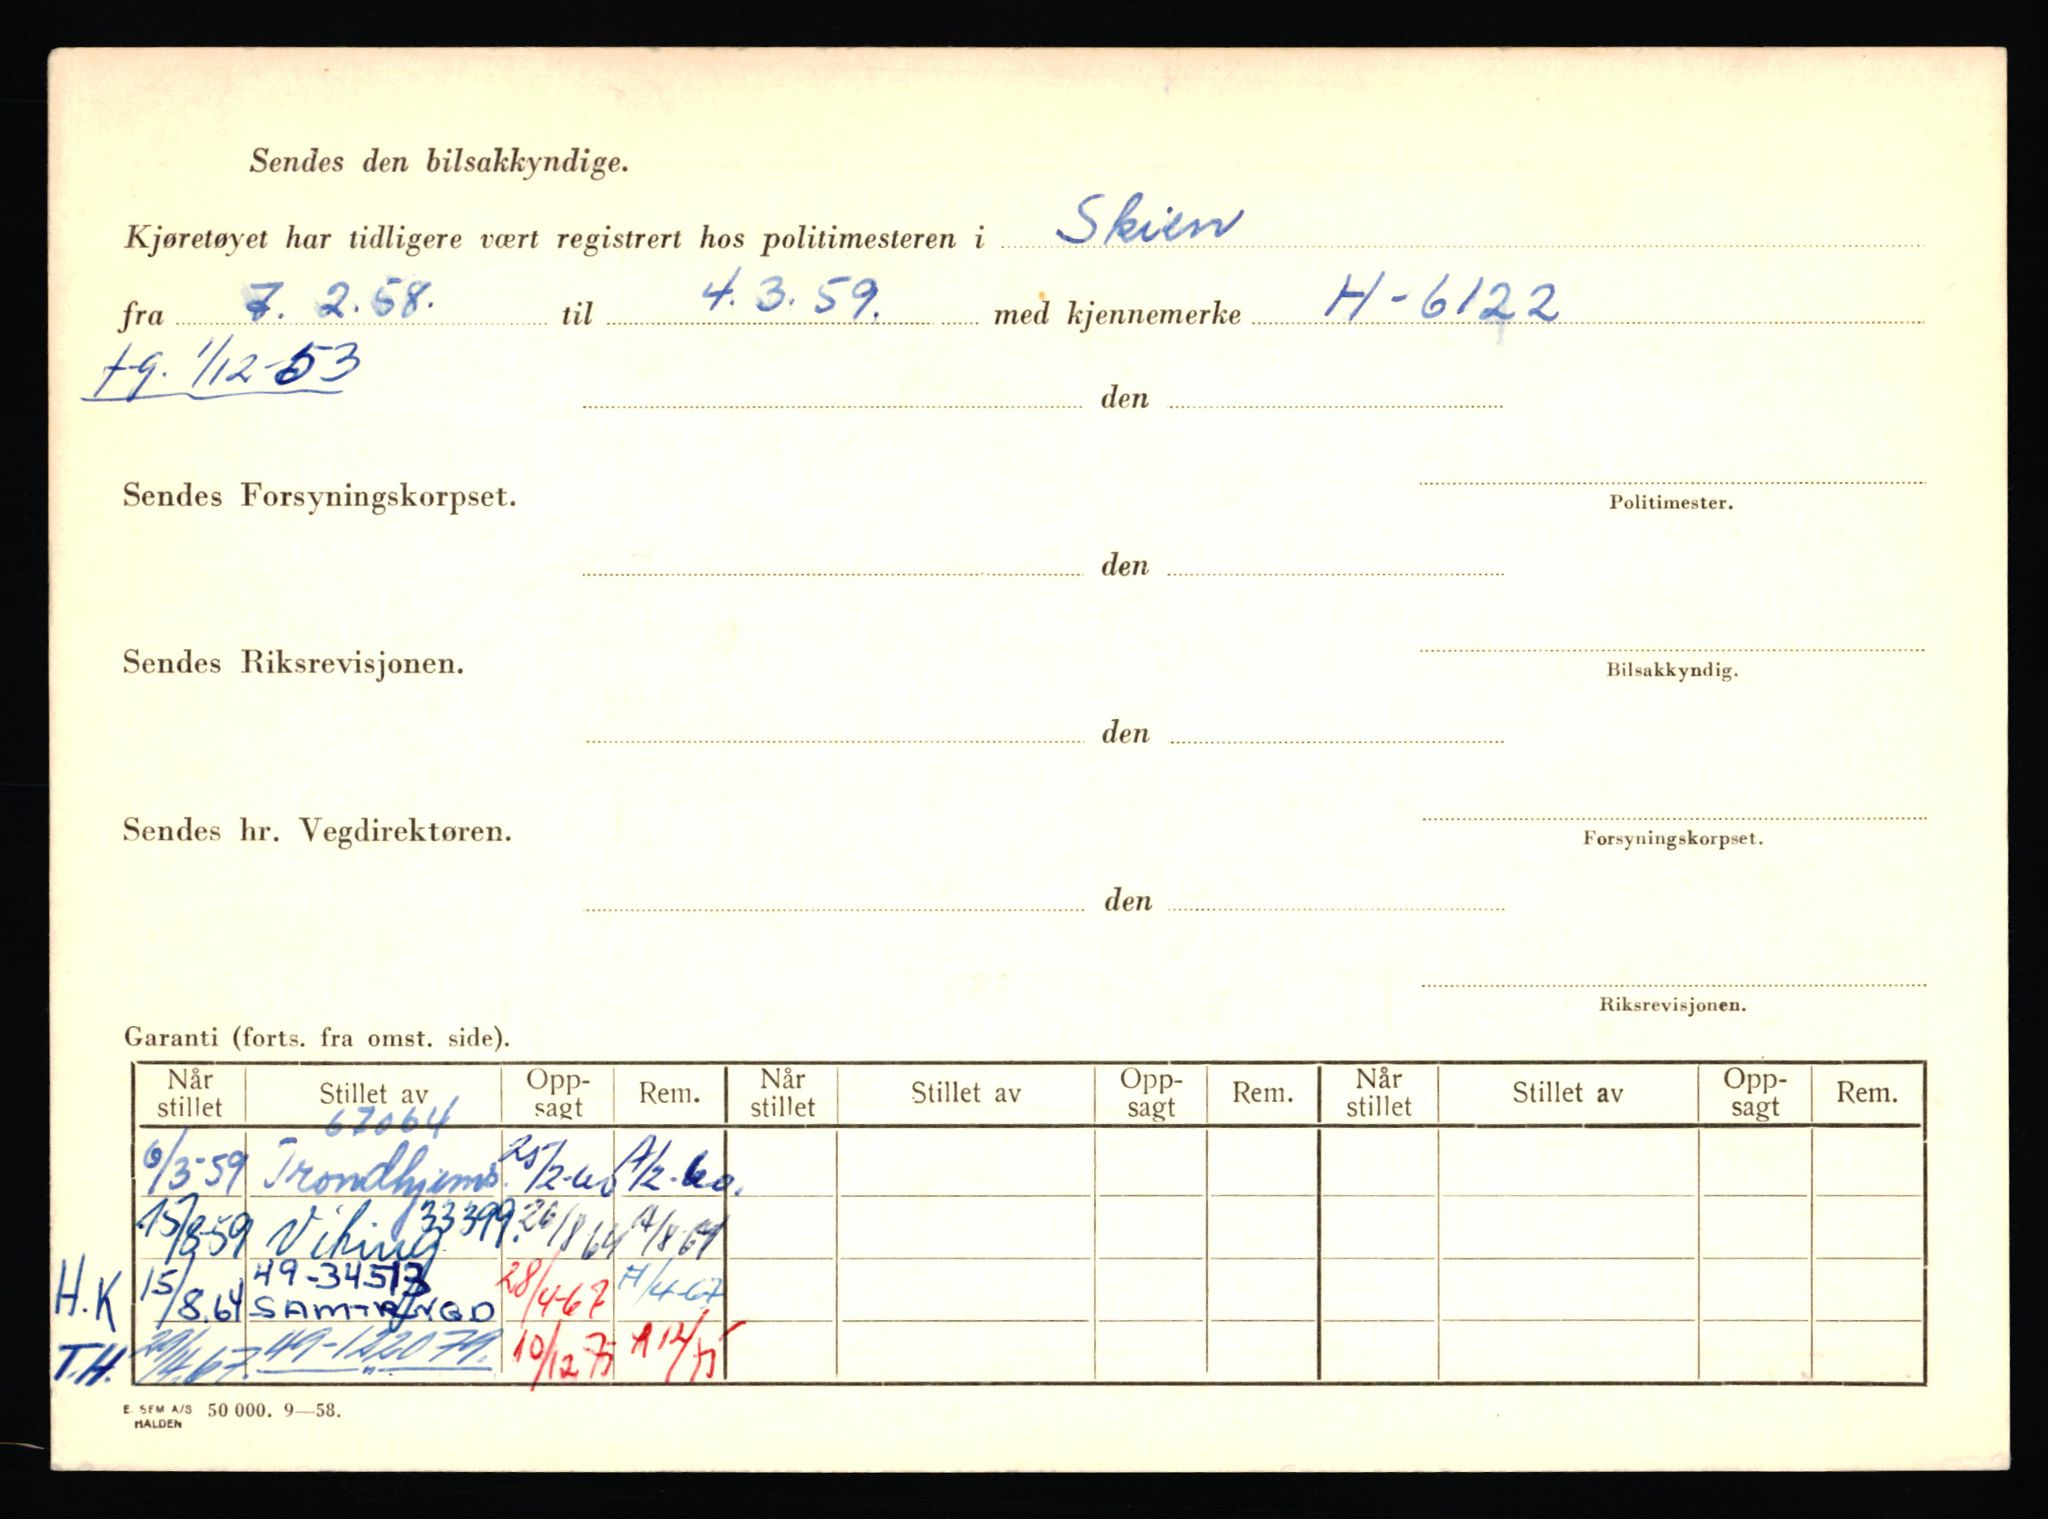 Sendes den bilsakkyndige.
Kjøretøyet har tidligere vært registrert hos politimesteren i Skien
fra 7. 2. 58. til 4. 3. 59. med kjennemerke H-6122
1/12-53
den
Sendes Forsyningskorpset.
Politimester.
den
Sendes Riksrevisjonen.
Bilsakkyndig.
den
Sendes hr. Vegdirektøren.
Forsyningskorpset.
den
Riksrevisjonen.
Garanti (forts. fra omst. side).
Når stillet Stillet av Opp-sagt Rem. Når stillet Stillet av Opp-sagt Rem. Når stillet Stillet av Opp-sagt Rem.
67064
6/3-59 Trondhjems.
15/8-59 Viking 33399. 26/8 64
H.K 15/8.64 49-34513 28/4-67
T.H. 29/4.67. 49-122079. 10/12 75
E. SEM A/S 50 000. 9—58.
HALDEN